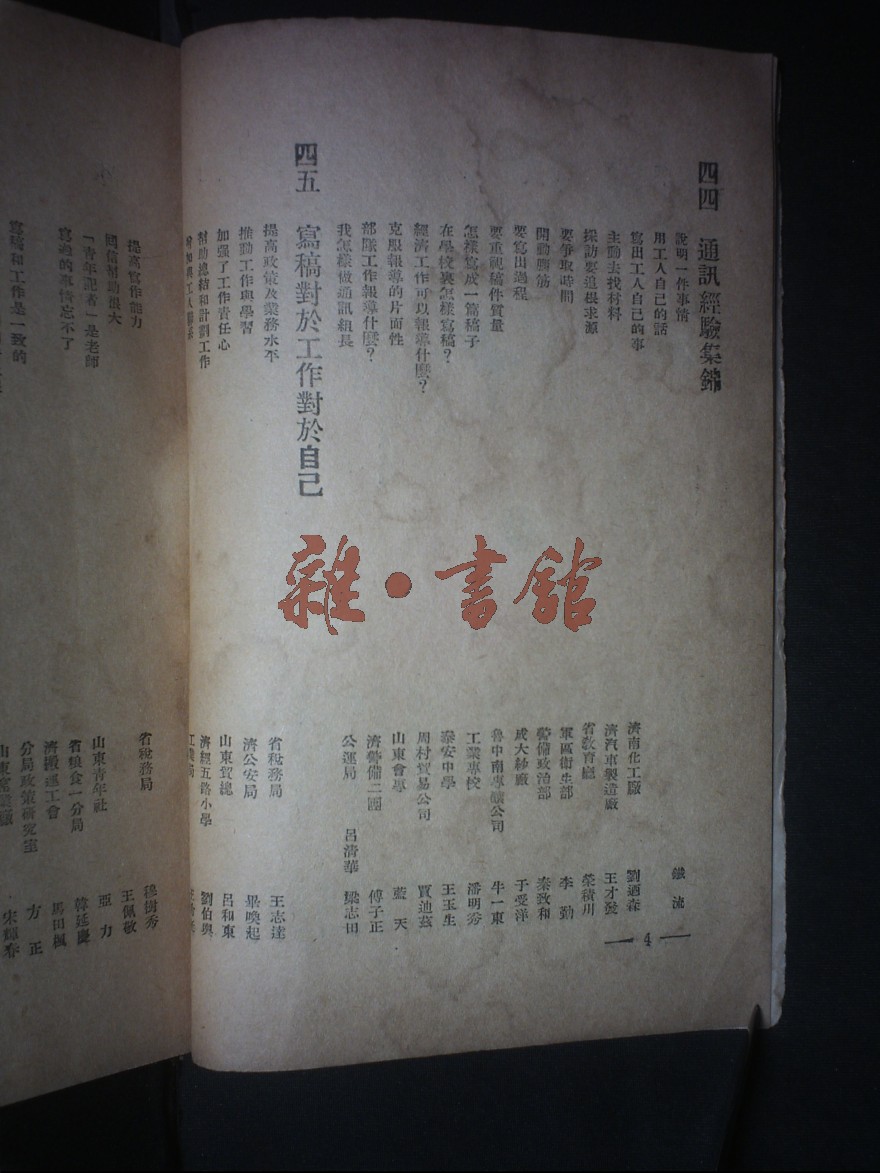 四四　通訊經驗集錦
說明一件事情　鐵流
用工人自己的話
寫出工人自己的事　濟南化工廠　劉迺森
主動去找材料　濟汽車製造廠　王才發
採訪要追根求源　省敎育廳　榮積川
要爭取時間　軍區衛生部　李勤
開動腦筋　警備政治部　秦致和
要寫出過程　成大紗廠　于受洋
要重視稿件質量　魯中南專賣公司　牛一東
怎樣寫成一篇稿子　工業專校　潘明秀
在學校裏怎樣寫稿？　泰安中學　王玉生
經濟工作可以報導什麼？　周村貿易公司　賈迪茲
克服報導的片面性　山東會專　藍天
部隊工作報導什麼？　濟警備二團　傅子正
我怎樣做通訊組長　公運局　呂清華　梁志田
四五　寫稿對於工作對於自己
提高政策及業務水平　省稅務局　王志達
推動工作與學習　濟公安局　畢喚起
加强了工作責任心　山東貿總　呂和東
幇助總結和計劃工作　濟經五路小學　劉伯與
4
雜·書舘
提高寫作能力　省稅務局　穆樹秀
回信幇助很大　王佩敬
「青年記者」是老師　山東青年社　亞力
省粮食一分局　韓廷慶
寫過的事情忘不了　濟搬運工會　馬田楓
分局政策研究室　方正
寫稿和工作是一致的　宋輝春